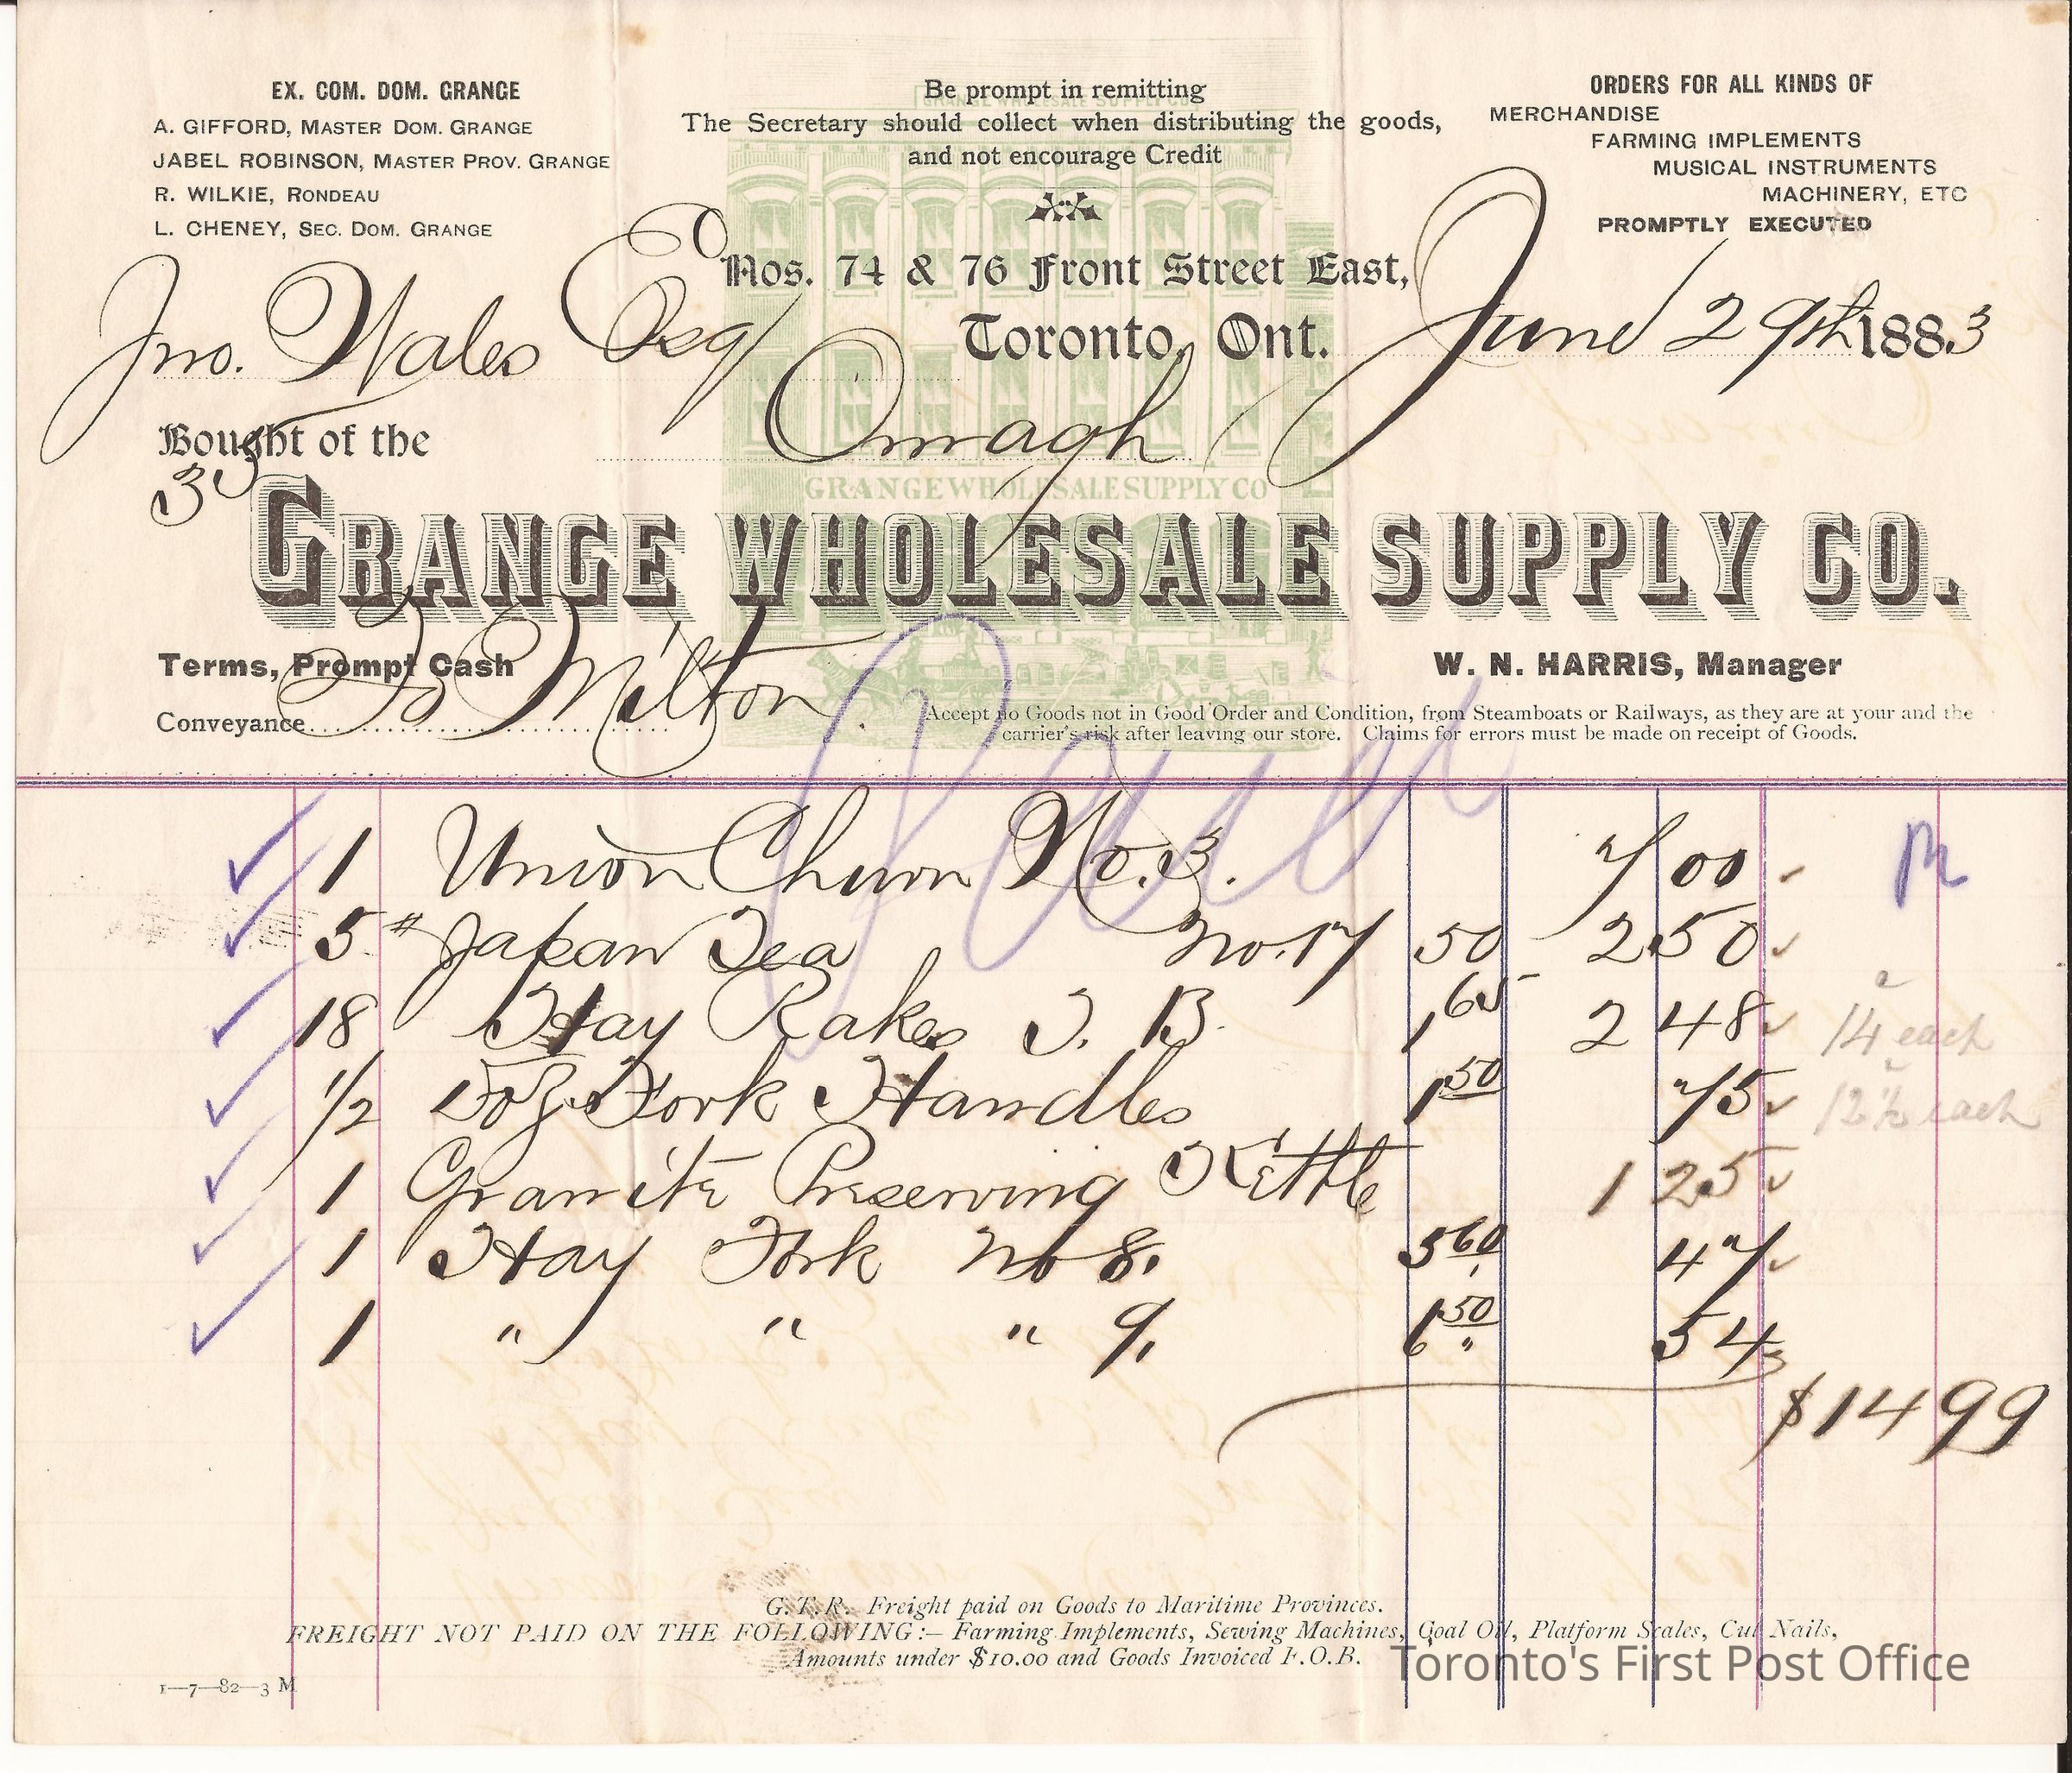 EX. COM. DOM. GRANGE
A. GIFFORD, MASTER DOM. GRANGE
JABEL ROBINSON, MASTER PROV. GRANGE
R. WILKIE, RONDEAU
L. CHENEY, SEC. DOM. GRANGE
Be prompt in remitting
The Secretary should collect when distributing the goods,
and not encourage Credit
ORDERS FOR ALL KINDS OF
MERCHANDISE
FARMING IMPLEMENTS
MUSICAL INSTRUMENTS
MACHINERY, ETC
PROMPTLY EXECUTED
GRANGE WHOLESALE SUPPLY CO
Nos. 74 & 76 Front Street East,
Toronto, Ont. June 29th 1883
Jno. Wales Esq
Omagh
Bought of the
35
GRANGE WHOLESALE SUPPLY CO
GRANGE WHOLESALE SUPPLY CO.
Terms, Prompt Cash
W. N. HARRIS, Manager
Conveyance To Milton.
Accept no Goods not in Good Order and Condition, from Steamboats or Railways, as they are at your and the
carrier's risk after leaving our store. Claims for errors must be made on receipt of Goods.
Paid
1 Union Churn No. 3. 7 00
5 # Japan Tea No. 17 50 2 50
18 Hay Rakes 3. B. 1 65 2 48 14 each
1/2 Doz. Fork Handles 1 50 75 12 1/2 each
1 Granite Preserving Kettle 1 25
1 Hay Fork No 8. 5 60 47
1 " " " 9. 6 50 54
$14 99
G.T.R. Freight paid on Goods to Maritime Provinces.
FREIGHT NOT PAID ON THE FOLLOWING:— Farming Implements, Sewing Machines, Coal Oil, Platform Scales, Cut Nails,
Amounts under $10.00 and Goods Invoiced F.O.B.
1—7—82—3 M
Toronto's First Post Office